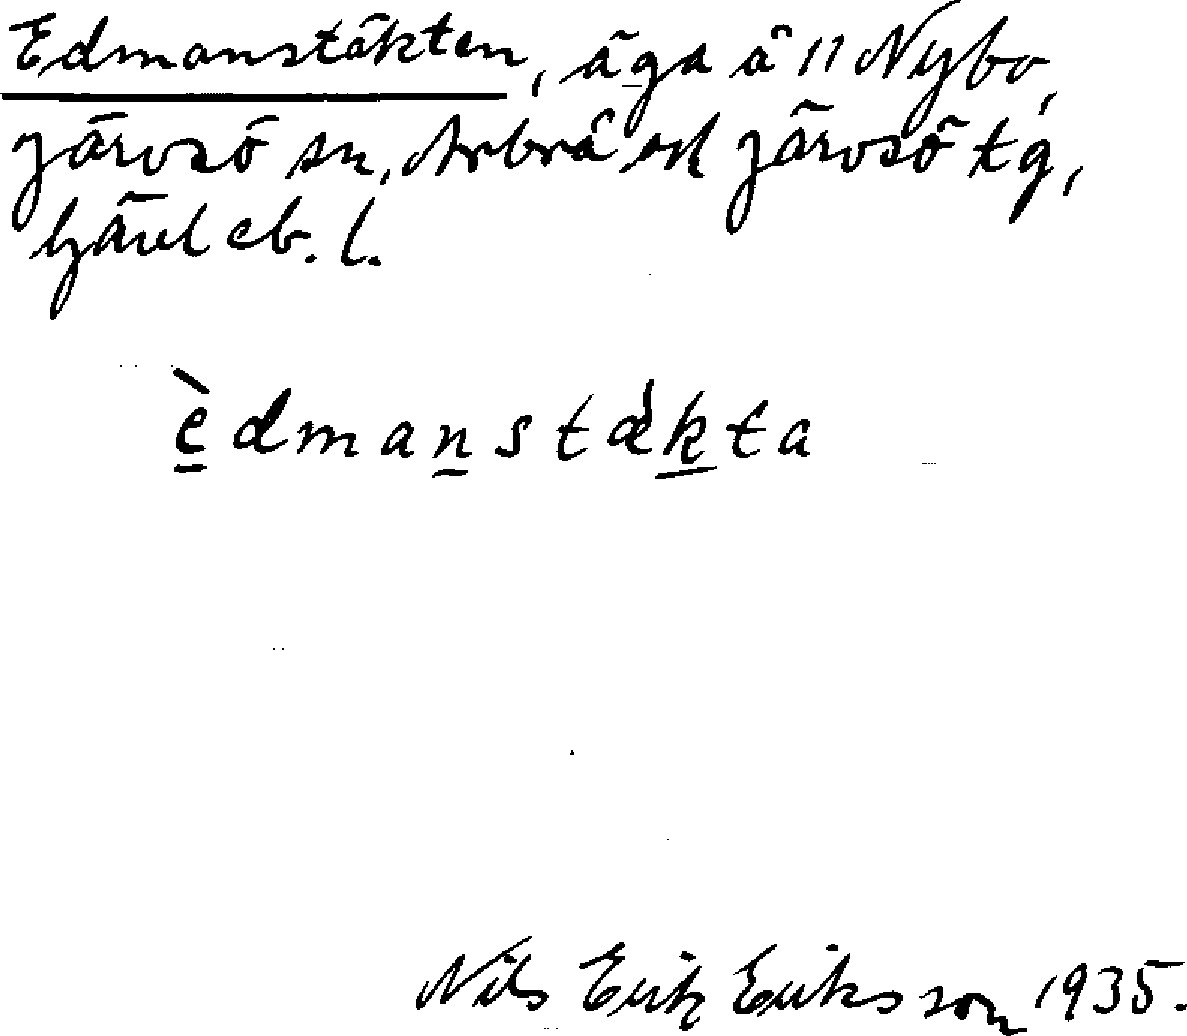 Edmanstäkten, äga å 11 Nybo,
Järvsö sn, Arbrå och Järvsö tg,
Gävleb. l.
èdmanstǽkta
Nils Erik Eriksson 1935.